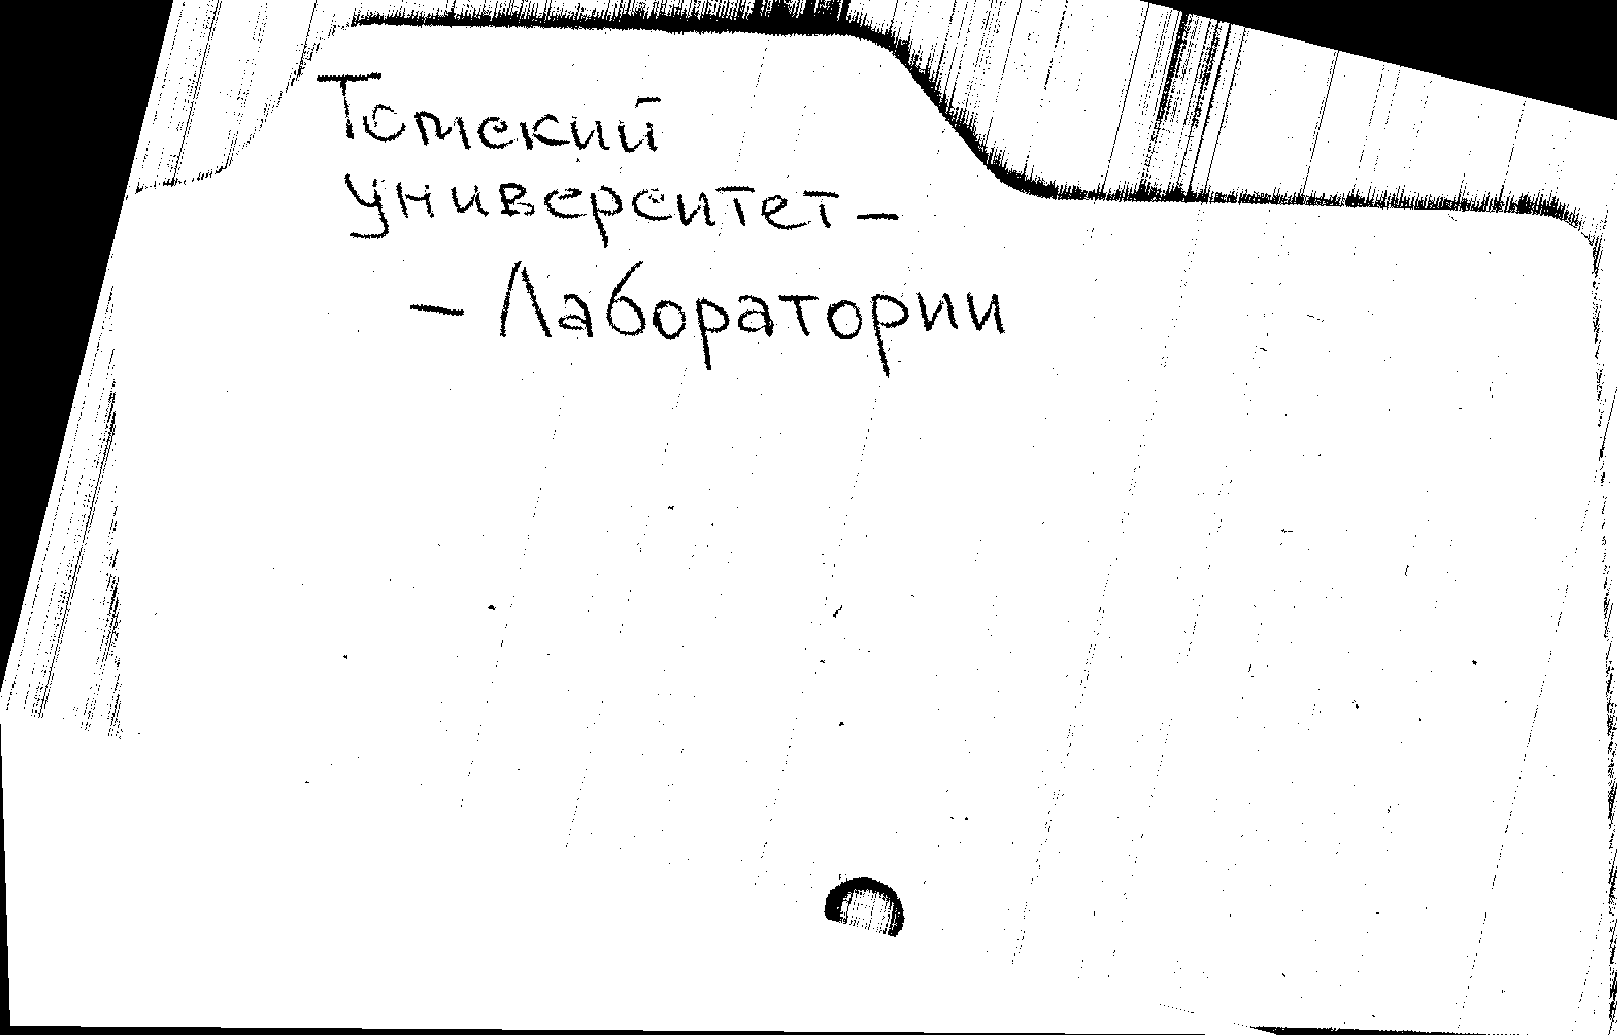 Томский
университет –
– Лаборатории